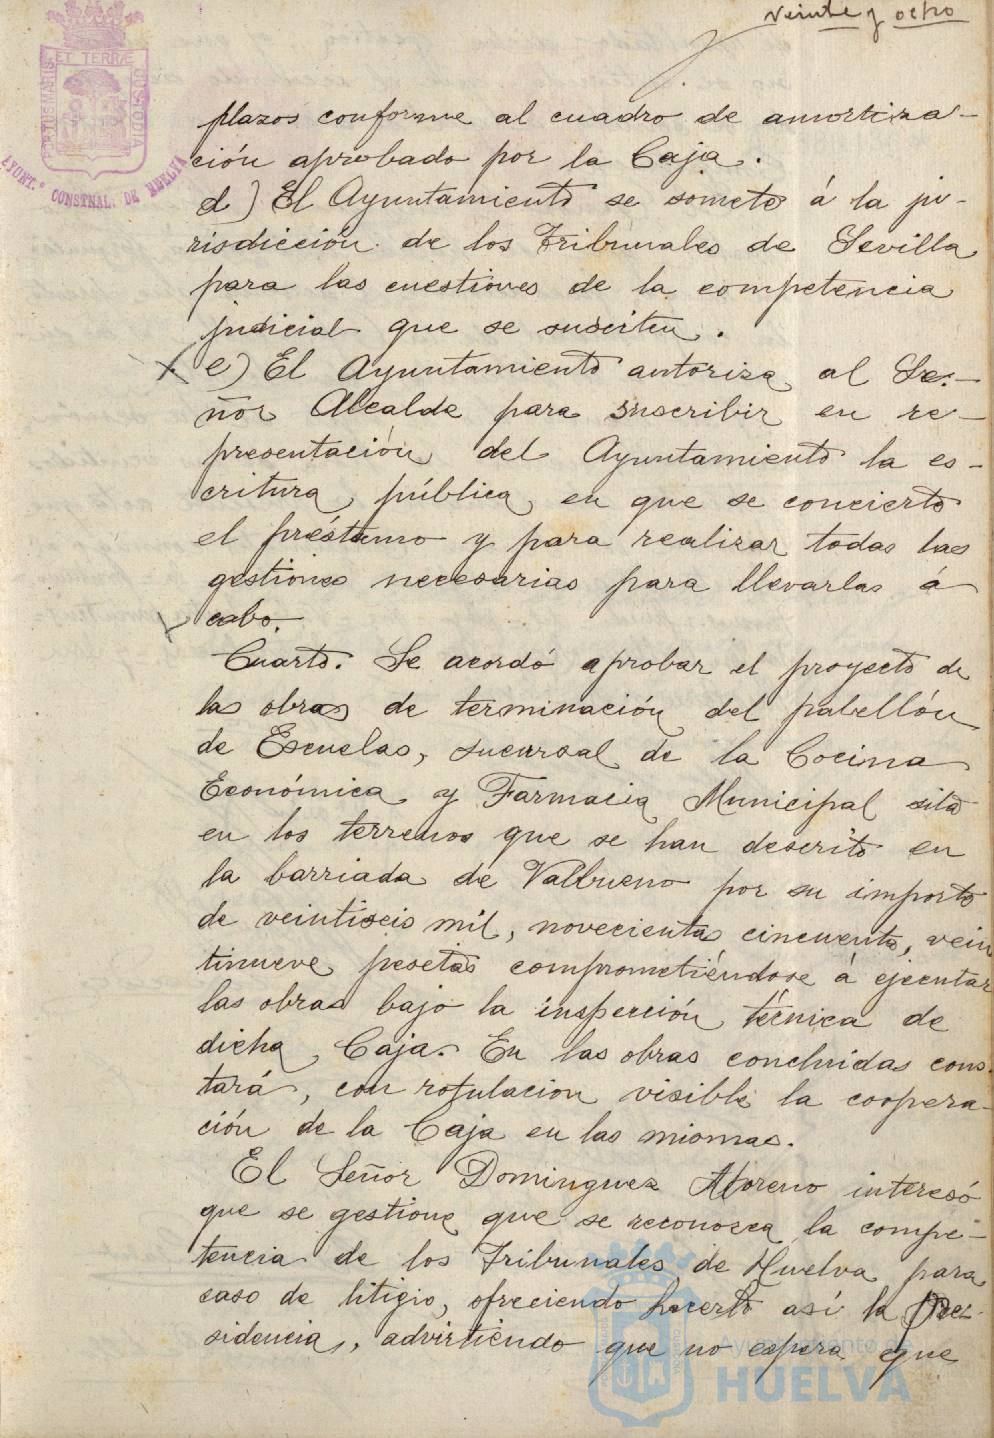 veinte y ocho
PORTUS MARIS ET TERRÆ CUSTODIA
AYUNT.º CONSTNAL. DE HUELVA
plazos conforme al cuadro de amortiza-
ción aprobado por la Caja.
d) El Ayuntamiento se somete á la ju-
risdicción de los Tribunales de Sevilla
para las cuestiones de la competencia
judicial que se susciten.
e) El Ayuntamiento autoriza al Se-
ñor Alcalde para suscribir en re-
presentación del Ayuntamiento la es-
critura pública en que se concierte
el préstamo y para realizar todas las
gestiones necesarias para llevarlas á
cabo.
Cuarto. Se acordó aprobar el proyecto de
las obras de terminación del pabellón
de Escuelas, sucursal de la Cocina
Económica y Farmacia Municipal sito
en los terrenos que se han descrito en
la barriada de Valbueno por su importe
de veintiseis mil, novecientas cincuenta, vein
tinueve pesetas comprometiéndose á ejecutar
las obras bajo la inspección técnica de
dicha Caja. En las obras concluidas cons-
tará, con rotulacion visible la coopera-
ción de la Caja en las mismas.
El Señor Dominguez Moreno interesó
que se gestione que se reconozca la compe-
tencia de los Tribunales de Huelva para
caso de litigio, ofreciendo hacerlo así la Pre-
sidencia, advirtiendo que no espera que
Ayuntamiento de
HUELVA